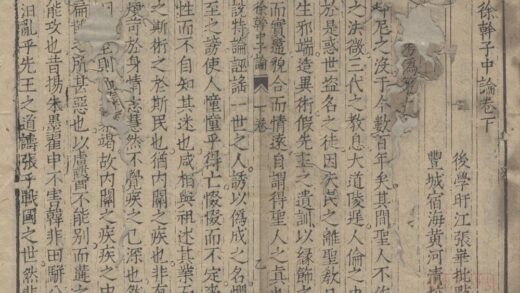 徐幹子中論卷下
後學盱江張華批點
豐城宿海黃河清
仲尼之沒于今數百年矣其間聖人不作
之法微三代之教息大道陵遲人倫之中
於是惑世盜名之徒因夫民之離聖教日
生邪端造異術假先王之遺訓以緣飾之
而實違貌合而情遠自謂得聖人之真也
徐幹子中論 下卷
說特論誣謠一世之人誘以偽成之名懼
至之謗使人憧憧乎得亡惙惙而不定
性而不自知其迷也咸相與祖述其業
之斯術之於斯民也猶內關之疾也非有
煩苛於身情志慧然不覺疾之已深也然
則血 竭故內關之疾疾中之
扁鵲之所甚惡也以盧醫不能別而遘之
能攻也昔楊朱墨翟申不害韓非田駢
汩亂乎先王之道譸張乎戰國之世然非